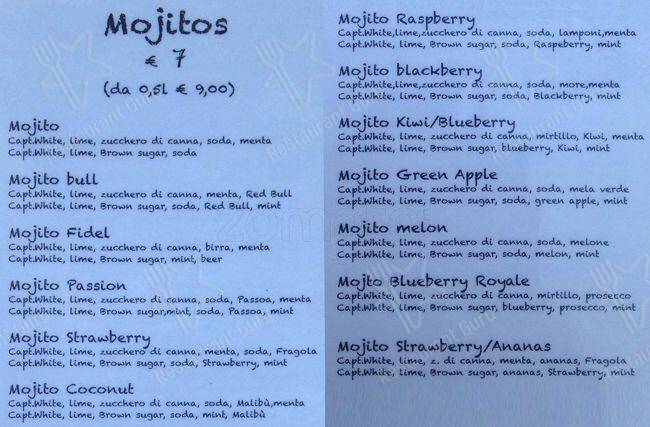 Mojitos
€ 7
(da 0,5l € 9,00)
Mojito
Capt.White, lime, zucchero di canna, soda, menta
Capt.White, lime, Brown sugar, soda
Mojito bull
Capt.White, lime, zucchero di canna, menta, Red Bull
Capt.White, lime, Brown sugar, soda, Red Bull, mint
Mojito Fidel
Capt.White, lime, zucchero di canna, birra, menta
Capt.White, lime, Brown sugar, mint, beer
Mojito Passion
Capt.White, lime, zucchero di canna, soda, Passoa, menta
Capt.White, lime, Brown sugar,mint, soda, Passoa, mint
Mojito Strawberry
Capt.White, lime, zucchero di canna, menta, soda, Fragola
Capt.White, lime, Brown sugar, soda, Strawberry, mint
Mojito Coconut
Capt.White, lime, zucchero di canna, soda, Malibù,menta
Capt.White, lime, Brown sugar, soda, mint, Malibù
Mojito Raspberry
Capt.White,lime,zucchero di canna, soda, lamponi,menta
Capt.White, lime, Brown sugar, soda, Raspeberry, mint
Mojito blackberry
Capt.White,lime,zucchero di canna, soda, more,menta
Capt.White, lime, Brown sugar, soda, Blackberry, mint
Mojito Kiwi/Blueberry
Capt.White, lime, zucchero di canna, mirtillo, Kiwi, menta
Capt.White, lime, Brown sugar, blueberry, Kiwi, mint
Mojito Green Apple
Capt.White, lime, zucchero di canna, soda, mela verde
Capt.White, lime, Brown sugar, soda, green apple, mint
Mojito melon
Capt.White, lime, zucchero di canna, soda, melone
Capt.White, lime, Brown sugar, soda, melon, mint
Mojto Blueberry Royale
Capt.White, lime, zucchero di canna, mirtillo, prosecco
Capt.White, lime, Brown sugar, blueberry, prosecco, mint
Mojito Strawberry/Ananas
Capt.White, lime, z. di canna, menta, ananas, Fragola
Capt.White, lime, Brown sugar, ananas, Strawberry, mint